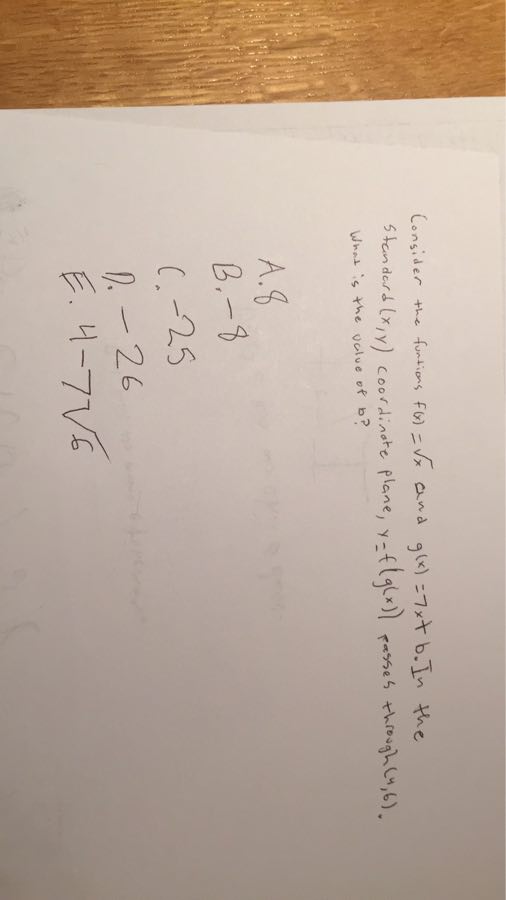 Consider the funtions f(x) = √x and g(x) = 7x + b. In the
standard (x,y) coordinate plane, y = f(g(x)) passes through (4,6).
What is the value of b?
A. 8
B. -8
C. -25
D. -26
E. 4-7√6